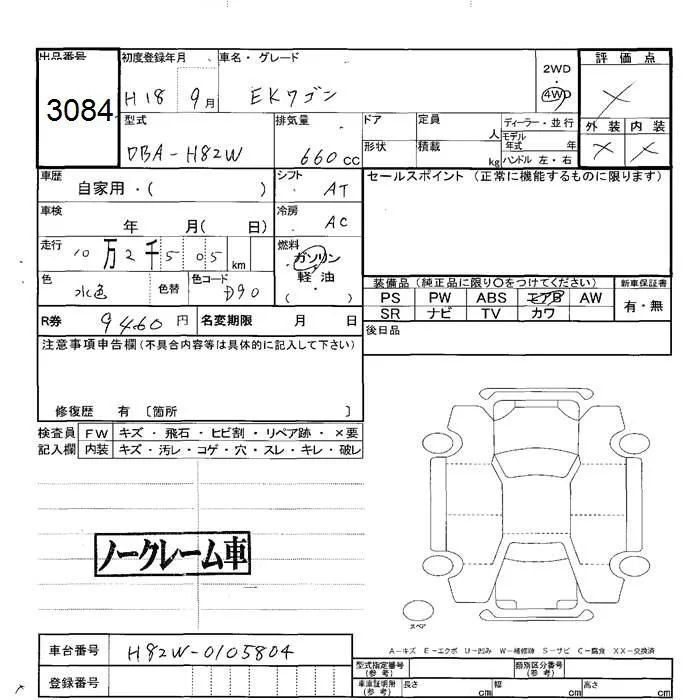 出品番号 初度登録年月 車名・グレード 評価点
3084 H18 9月 EKワゴン 2WD ・ 4WD ×
型式 排気量 ドア 定員 人 ディーラー・並行 外装 内装
DBA-H82W 660cc 形状 積載 kg モデル年式 年 ハンドル 左・右 × ×
車歴 自家用・( ) シフト AT セールスポイント (正常に機能するものに限ります)
車検 年 月( 日) 冷房 AC
走行 10万2千505km 燃料 ガソリン 軽油 ( )
色 水色 色替 色コード D90 装備品 (純正品に限り○をつけてください) 新車保証書
PS PW ABS エアB AW 有・無
SR ナビ TV カワ
R券 9460円 名変期限 月 日 後日品
注意事項申告欄(不具合内容等は具体的に記入して下さい)
修復歴 有 〔箇所 〕
検査員 FW キズ・飛石・ヒビ割・リペア跡・×要
記入欄 内装 キズ・汚レ・コゲ・穴・スレ・キレ・破レ
ノークレーム車
スペア
A-キズ E-エクボ U-凹み W-補修跡 S-サビ C-腐食 XX-交換済
車台番号 H82W-0105804
型式指定番号(参考) 類別区分番号(参考)
登録番号 車庫証明用(参考) 長さ cm 幅 cm 高さ cm